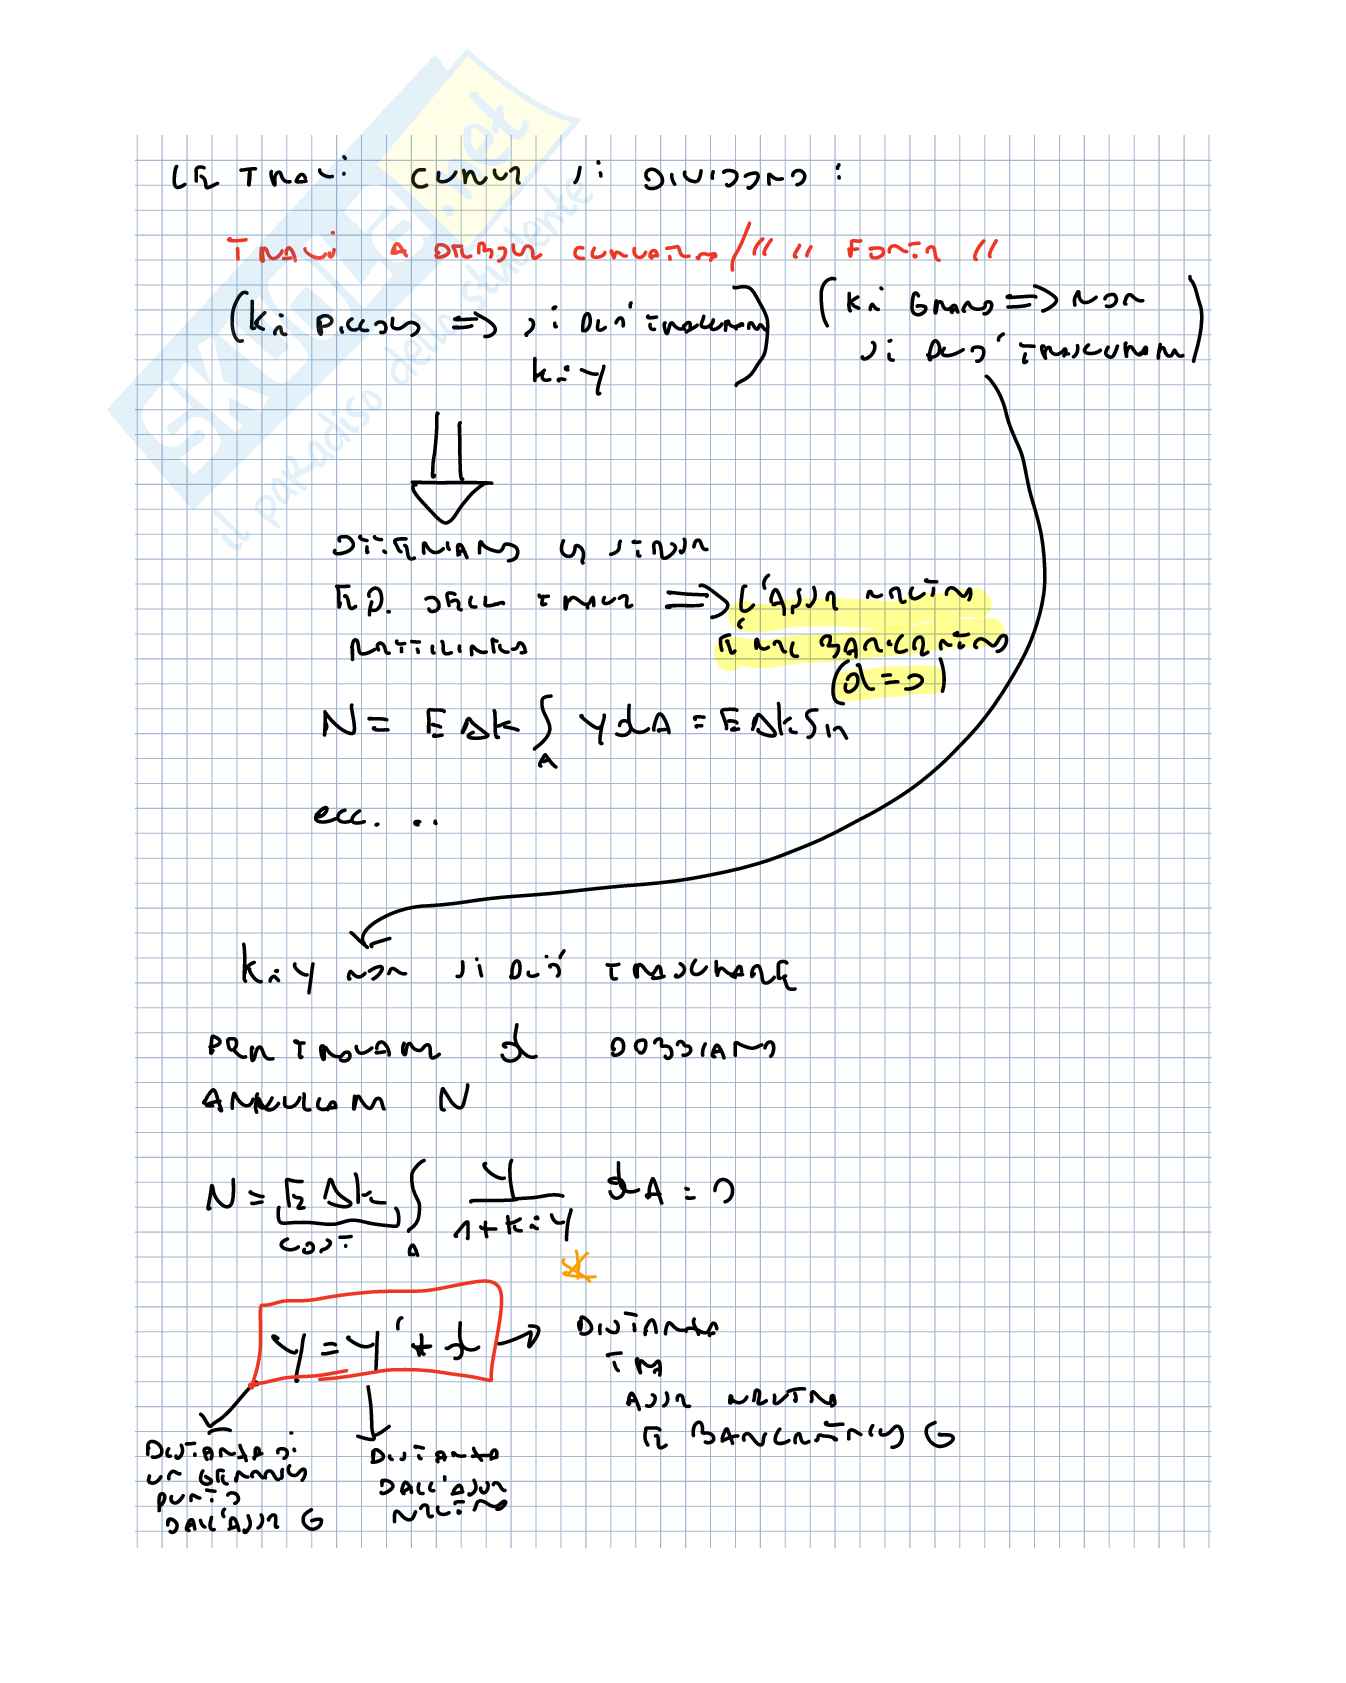 LE TRAVI CURVE SI DIVIDONO:
TRAVI A DEBOLE CURVATURA / " " FORTE "
(ki PICCOLO => SI PUÒ TRASCURARE
ki y)
(ki GRANDE => NON
SI PUÒ TRASCURARE)
OTTENIAMO LA STESSA
EQ. DELLE TRAVI => L'ASSE NEUTRO
RETTILINEE
È NEL BARICENTRO
(d=0)
N = E Δk ∫A y dA = E Δk Sn
ecc. ..
ki y NON SI PUÒ TRASCURARE
PER TROVARE d DOBBIAMO
ANNULLARE N
N = E Δk ∫A y / (1 + ki y) dA = 0
COST
y = y' + d → DISTANZA
TRA
ASSE NEUTRO
E BARICENTRICO G
DISTANZA DI
UN GENERICO
PUNTO
DALL'ASSE G
DISTANZA
DALL'ASSE
NEUTRO
SKUOLA.net
il paradiso dello studente